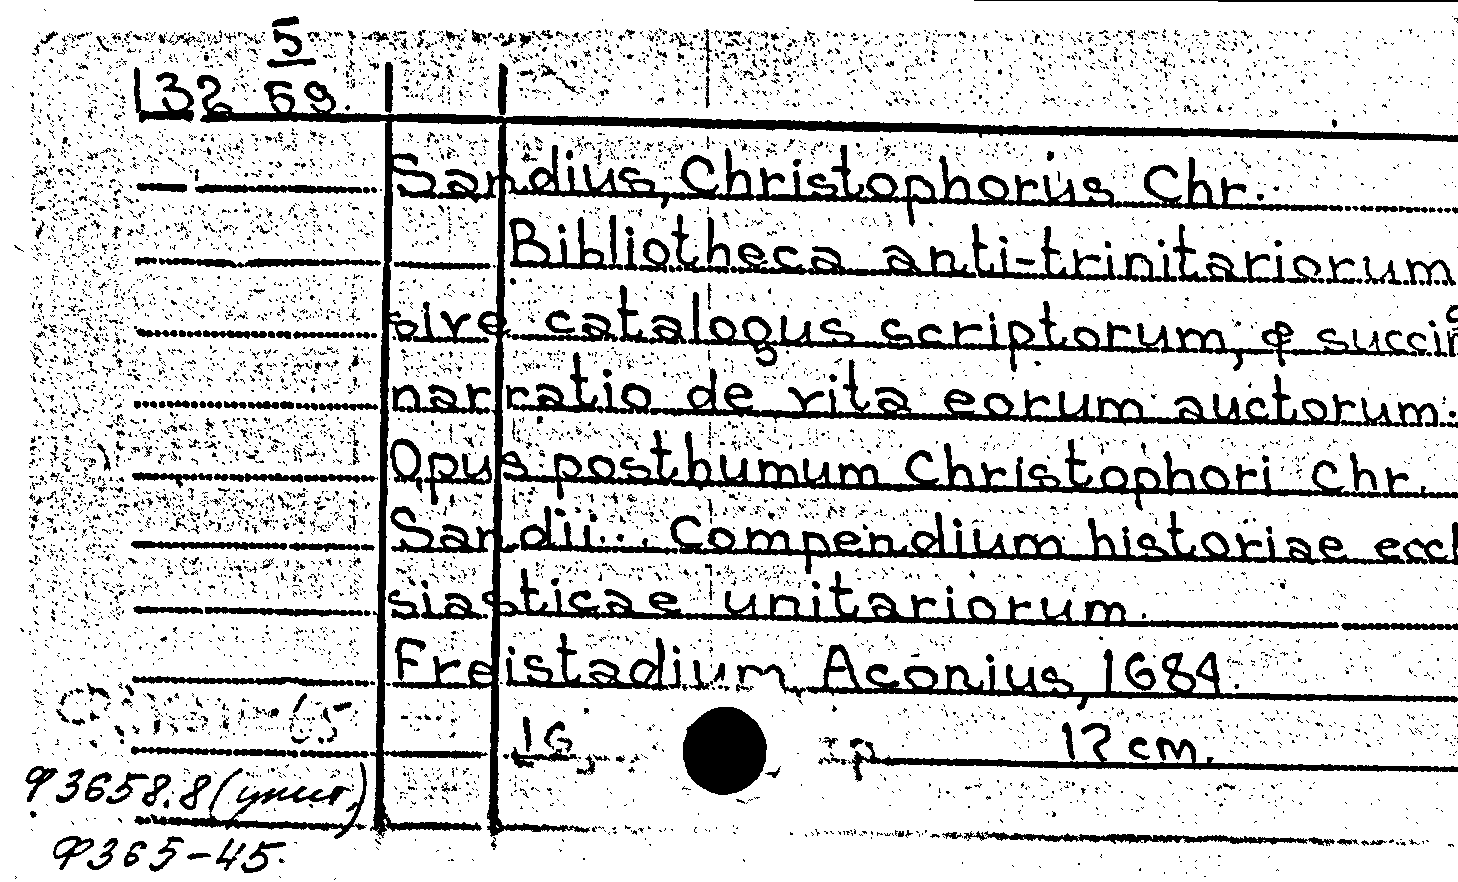 5
132 59.
Sandius, Christophorus Chr.
Bibliotheca anti-trinitariorum
sive catalogus scriptorum, & succin
narratio de vita eorum auctorum.
Opus posthumum Christophori Chr.
Sandii... Compendium historiae eccl
siasticae unitariorum.
Freistadium, Aconius, 1684.
16, p 12 cm.
Ф3658.8 (унит.)
Ф365-45.